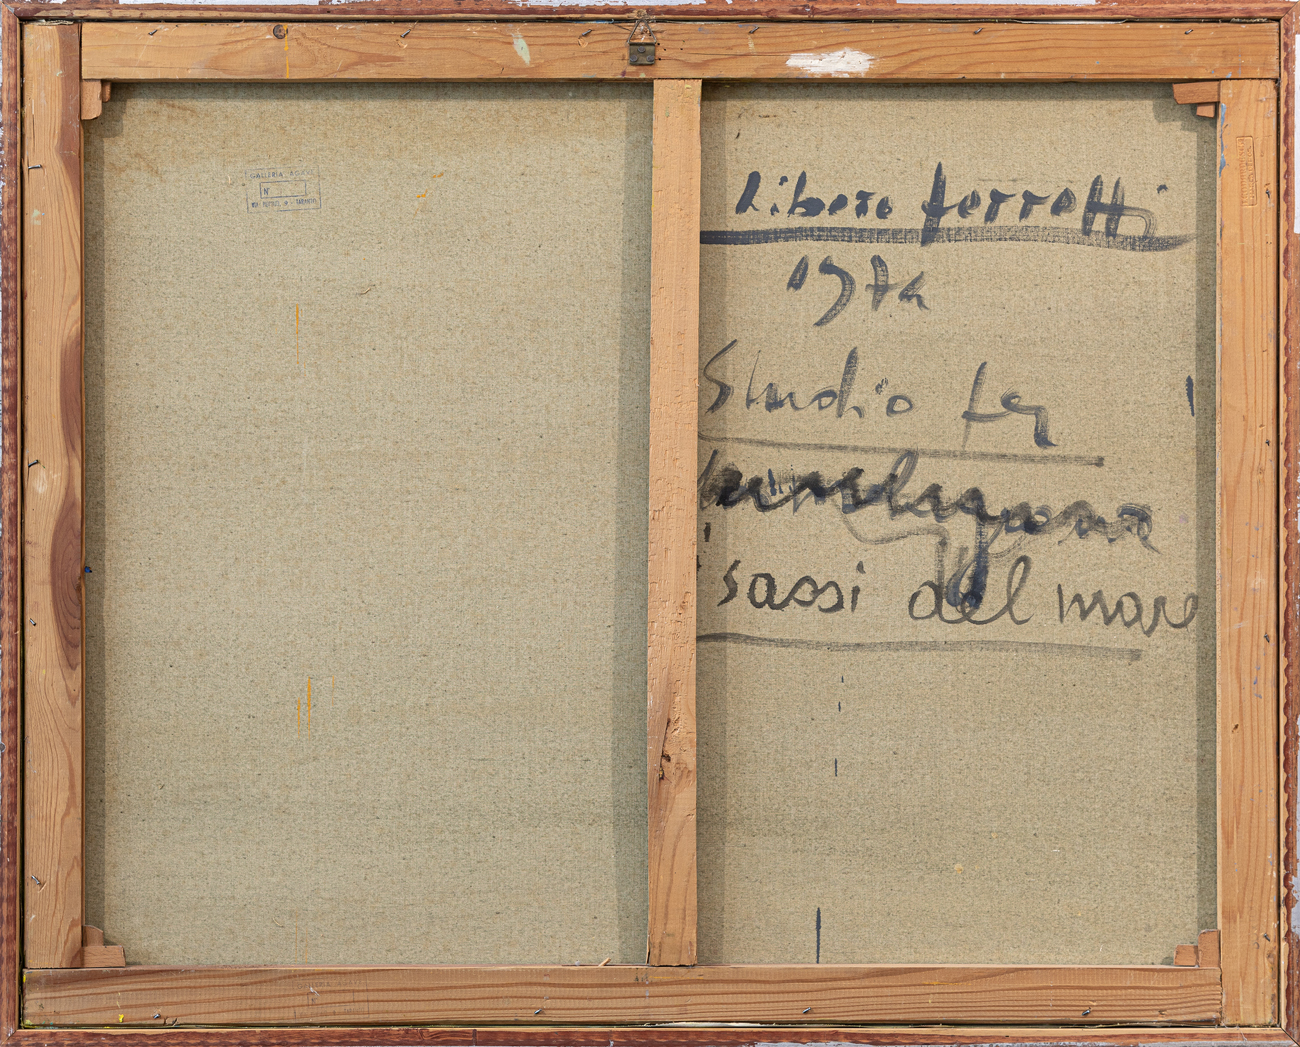 GALLERIA
N°
TARANTO
Libero ferretti
197
Studio per
i sassi del mare